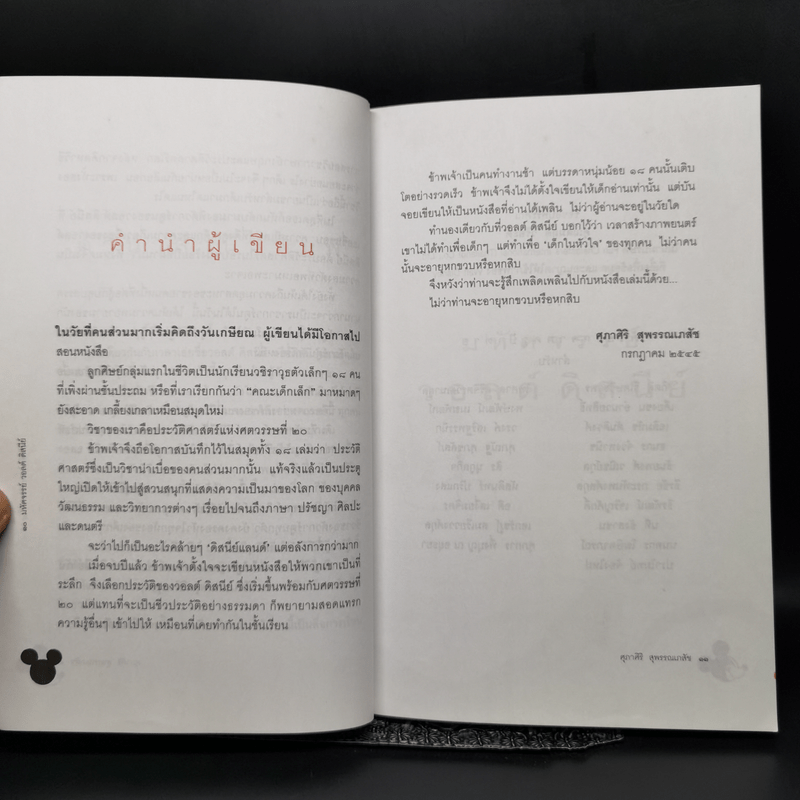 คำนำผู้เขียน
ในวัยที่คนส่วนมากเริ่มคิดถึงวันเกษียณ ผู้เขียนได้มีโอกาสไป
สอนหนังสือ
ลูกศิษย์กลุ่มแรกในชีวิตเป็นนักเรียนวชิราวุธตัวเล็กๆ ๑๘ คน
ที่เพิ่งผ่านชั้นประถม หรือที่เราเรียกกันว่า “คณะเด็กเล็ก” มาหมาดๆ
ยังสะอาด เกลี้ยงเกลาเหมือนสมุดใหม่
วิชาของเราคือประวัติศาสตร์แห่งศตวรรษที่ ๒๐
ข้าพเจ้าจึงถือโอกาสบันทึกไว้ในสมุดทั้ง ๑๘ เล่มว่า ประวัติ
ศาสตร์ซึ่งเป็นวิชาน่าเบื่อของคนส่วนมากนั้น แท้จริงแล้วเป็นประตู
ใหญ่เปิดให้เข้าไปสู่สวนสนุกที่แสดงความเป็นมาของโลก ของบุคคล
วัฒนธรรม และวิทยาการต่างๆ เรื่อยไปจนถึงภาษา ปรัชญา ศิลปะ
และดนตรี
จะว่าไปก็เป็นอะไรคล้ายๆ ‘ดิสนีย์แลนด์’ แต่อลังการกว่ามาก
เมื่อจบปีแล้ว ข้าพเจ้าตั้งใจจะเขียนหนังสือให้พวกเขาเป็นที่
ระลึก จึงเลือกประวัติของวอลต์ ดิสนีย์ ซึ่งเริ่มขึ้นพร้อมกับศตวรรษที่
๒๐ แต่แทนที่จะเป็นชีวประวัติอย่างธรรมดา ก็พยายามสอดแทรก
ความรู้อื่นๆ เข้าไปให้ เหมือนที่เคยทำกันในชั้นเรียน
๑๐ มหัศจรรย์ วอลต์ ดิสนีย์
ข้าพเจ้าเป็นคนทำงานช้า แต่บรรดาหนุ่มน้อย ๑๘ คนนั้นเติบ
โตอย่างรวดเร็ว ข้าพเจ้าจึงไม่ได้ตั้งใจเขียนให้เด็กอ่านเท่านั้น แต่บัน
จอยเขียนให้เป็นหนังสือที่อ่านได้เพลิน ไม่ว่าผู้อ่านจะอยู่ในวัยใด
ทำนองเดียวกับที่วอลต์ ดิสนีย์ บอกไว้ว่า เวลาสร้างภาพยนตร์
เขาไม่ได้ทำเพื่อเด็กๆ แต่ทำเพื่อ ‘เด็กในหัวใจ’ ของทุกคน ไม่ว่าคน
นั้นจะอายุหกขวบหรือหกสิบ
จึงหวังว่าท่านจะรู้สึกเพลิดเพลินไปกับหนังสือเล่มนี้ด้วย...
ไม่ว่าท่านจะอายุหกขวบหรือหกสิบ
ศุภาศิริ สุพรรณเภสัช
กรกฎาคม ๒๕๔๕
ศุภาศิริ สุพรรณเภสัช ๑๑